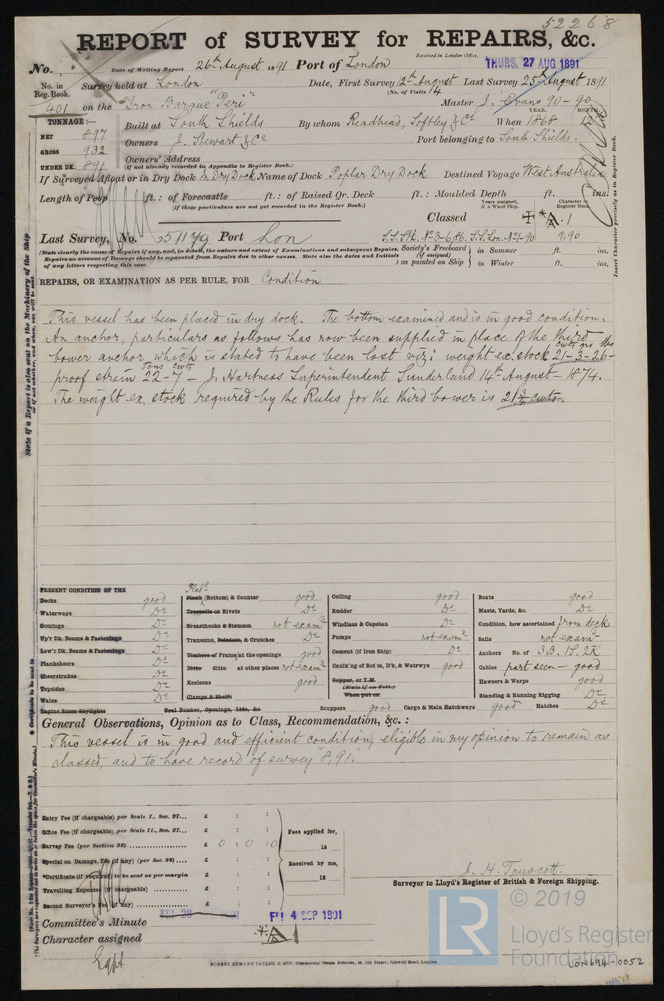 52268
REPORT of SURVEY for REPAIRS, &c.
Received in London Office,
No. Date of Writing Report 26th August 1891 Port of London THURS. 27 AUG 1891
No. in Reg. Book. Survey held at London Date, First Survey 12th August Last Survey 25th August 1891
(No. of Visits 4
401 on the Iron Barque "Peri" Master J. Evans 90-90
TONNAGE:— YEAR. MONTH.
NET 897 Built at South Shields By whom Readhead, Softley & Co When 1868 12
GROSS 932 Owners J. Stewart & Co Port belonging to South Shields.
UNDER DK. 891 Owners' Address
(If not already recorded in Appendix to Register Book.)
If Surveyed Afloat or in Dry Dock In Dry Dock Name of Dock Poplar Dry Dock Destined Voyage West Australia
Length of Poop ft.: of Forecastle ft.: of Raised Qr. Deck ft.: Moulded Depth ft. ins.
(If these particulars are not yet recorded in the Register Book.)
Years assigned, if a Wood Ship. Character in Register Book.
Classed A. 1
Last Survey, No. 51179 Port Lon S.S.Shl. No 3-6.86. S.S.Lon. No 1-90 9.90
(State clearly the cause of Repairs if any, and, in detail, the nature and extent of Examinations and subsequent Repairs.
Repairs on account of Damage should be separated from Repairs due to other causes. State also the dates and Initials
of any letters respecting this case.
Society's Freeboard (if assigned) as painted on Ship { in Summer ft. ins.
in Winter ft. ins.
REPAIRS, OR EXAMINATION AS PER RULE, FOR Condition
This vessel has been placed in dry dock. The bottom examined and is in good condition.
An anchor, particulars as follows has now been supplied in place of the third
bower anchor which is stated to have been lost viz: weight ex. stock 21-3-26-
proof strain 22-7- J. Hartness Superintendent Sunderland 14th August - 1874.
The weight ex. stock required by the Rules for the third bower is 21¾ cwts.
PRESENT CONDITION OF THE
Decks good
Waterways Do
Comings Do
Up'r Dk. Beams & Fastenings Do
Low'r Dk. Beams & Fastenings Do
Planksheers Do
Sheerstrakes Do
Topsides Do
Wales Do
Engine Room Skylights
Plank (Bottom) & Counter good
Treenails or Rivets Do
Breasthooks & Stemson not examd
Transoms, Pointers, & Crutches Do
Timbers of Frame at the openings good
Ditto ditto at other places not examd
Keelsons good
Clamps & Shelfs
Coal Bunker, Openings, Lids, &c
Ceiling good
Rudder Do
Windlass & Capstan Do
Pumps not examd
Cement (if Iron Ship) Do
Caulk'g of Bot'm, D'k, & Watrwys good
Copper, or Y.M.
(State if on Felt)
When put on
Scuppers good Cargo & Main Hatchways good Hatches Do
Boats good
Masts, Yards, &c. Do
Condition, how ascertained from deck
Sails not examd
Anchors No. of 3B. 1S. 2K
Cables part seen - good
Hawsers & Warps good
Standing & Running Rigging Do
General Observations, Opinion as to Class, Recommendation, &c.:
This vessel is in good and efficient condition, eligible in my opinion to remain as
classed, and to have record of survey 8,91.
Entry Fee (if chargeable) per Scale I., Sec. 27... £ : :
Office Fee (if chargeable) per Scale II., Sec. 27... £ : :
Survey Fee (per Section 28) £ 0 : 0 : 0
Special on Damage, Fee (if any) (per Sec. 28) £ : :
*Certificate (if required) to be sent as per margin £ : :
Travelling Expenses (if chargeable) £ : :
Second Surveyor's Fee (if any) £ : :
Fees applied for,
18
Received by me,
18
J. H. Truscott.
Surveyor to Lloyd's Register of British & Foreign Shipping.
Committee's Minute FRI 4 SEP 1891
Character assigned A1
© 2019
LR
Lloyd's Register
Foundation
LON694-0052